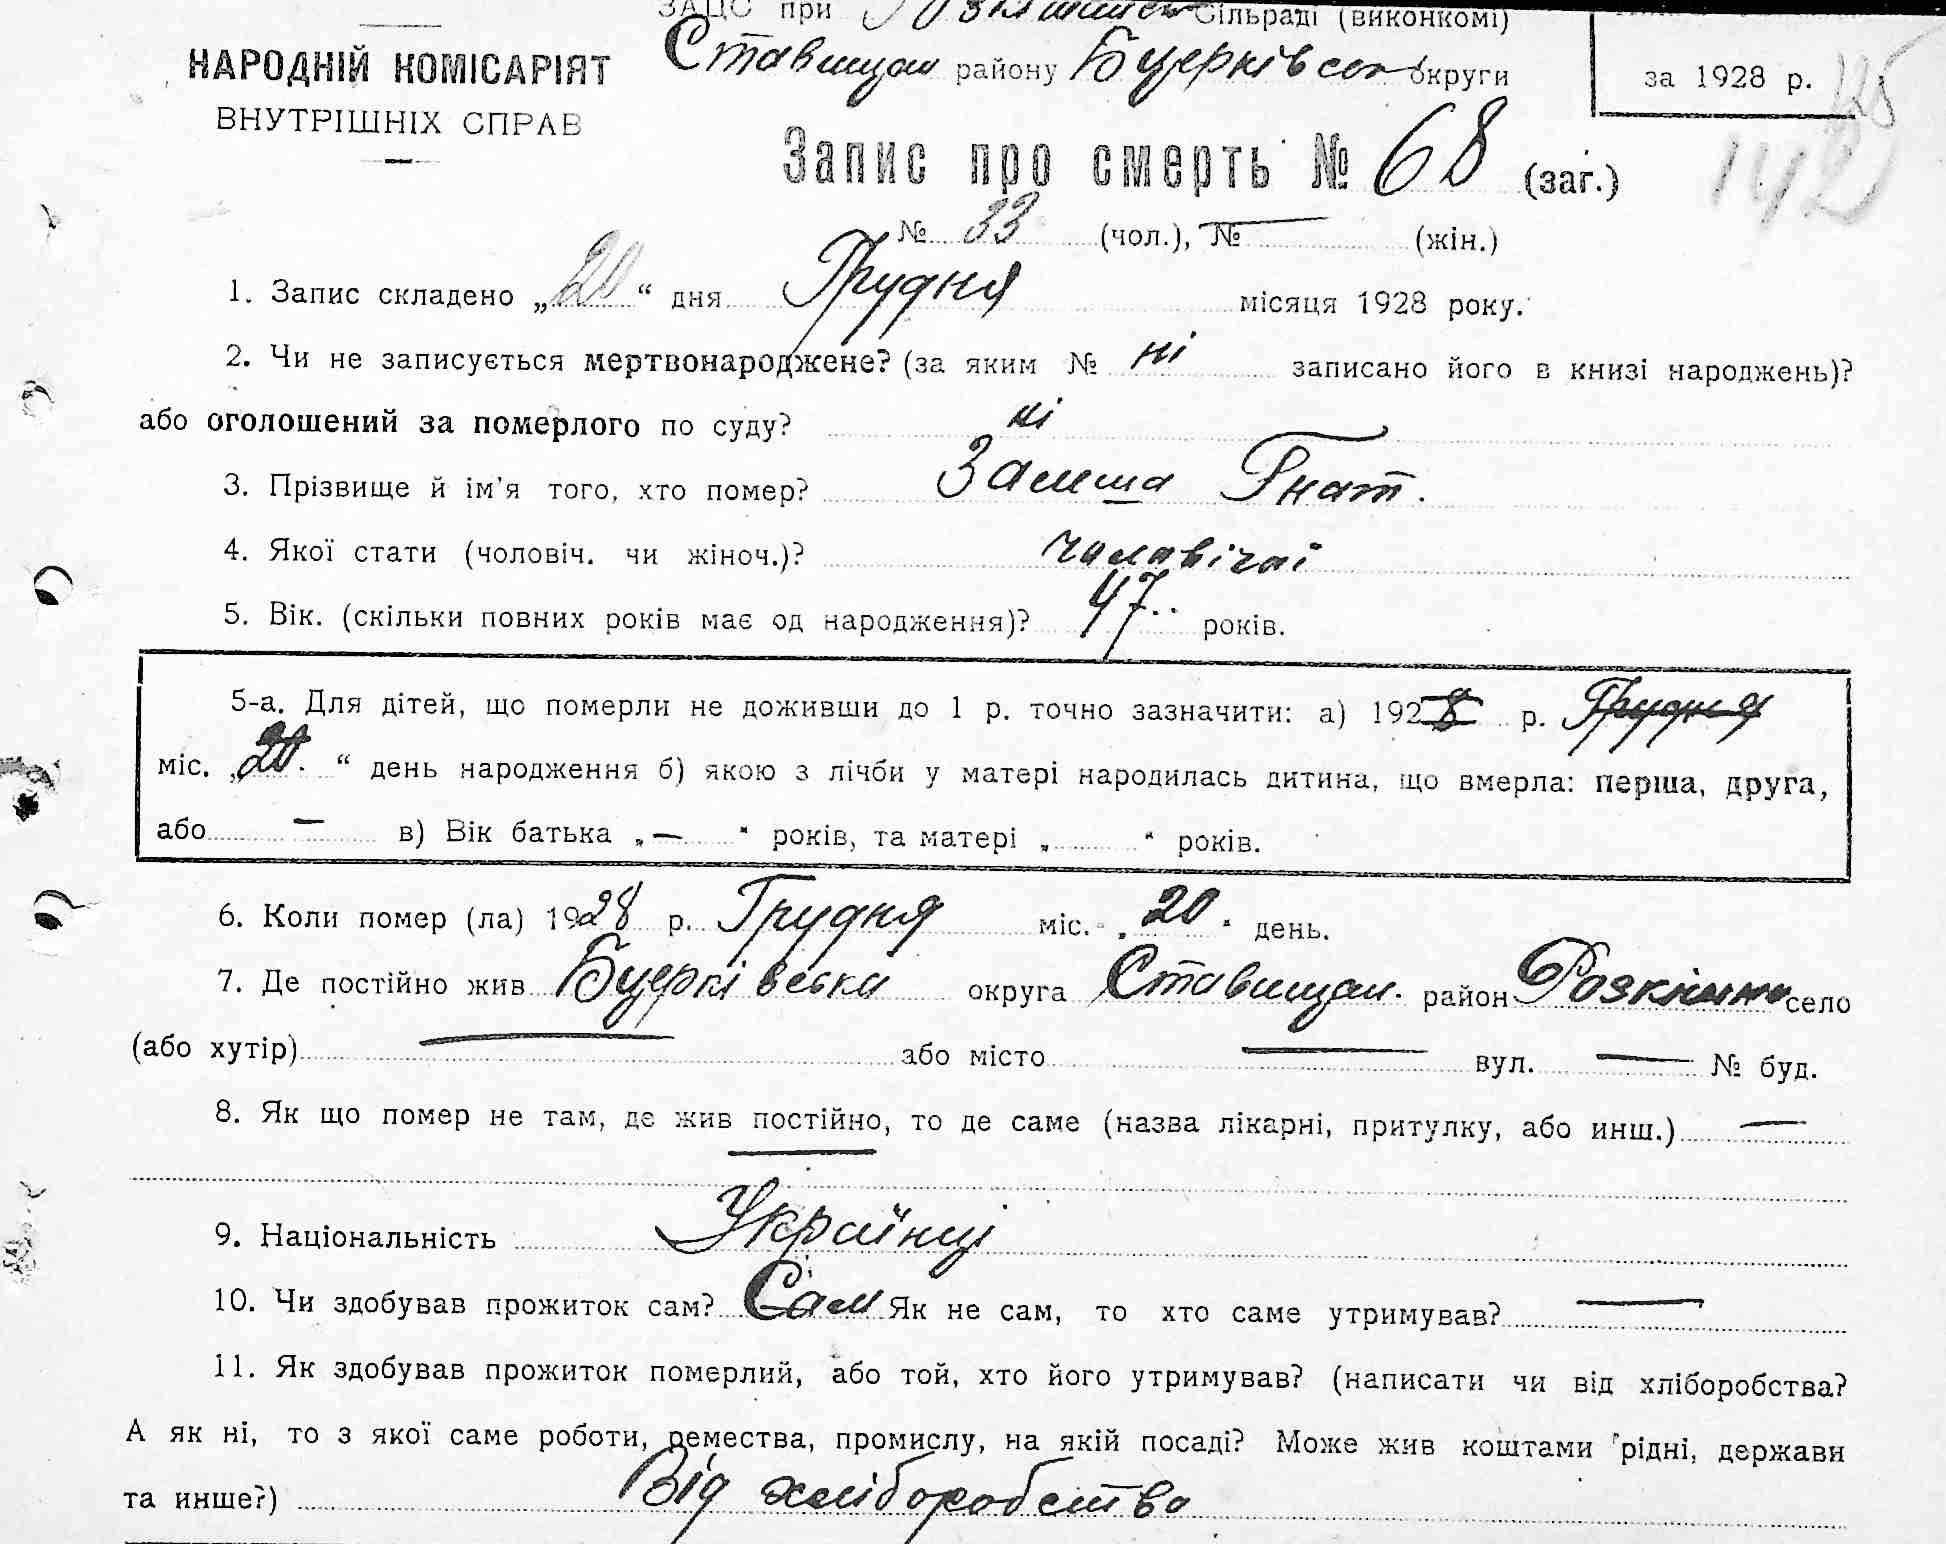 ЗАЦС при Сільраді (виконкомі)
НАРОДНІЙ КОМІСАРІЯТ
ВНУТРІШНІХ СПРАВ
Ставищан району Буцерківсь округи
за 1928 р.
Запис про смерть № 68 (заг.)
142
№ 33 (чол.), № — (жін.)
1. Запис складено „20“ дня Грудня місяця 1928 року.
2. Чи не записується мертвонароджене? (за яким № ні записано його в книзі народжень)?
або оголошений за померлого по суду? ні
3. Прізвище й ім'я того, хто помер? Гнат.
4. Якої стати (чоловіч. чи жіноч.)? чоловічої
5. Вік. (скільки повних років має од народження)? 47 років.
5-а. Для дітей, що померли не доживши до 1 р. точно зазначити: а) 1928 р. Грудня
міс. „20.“ день народження б) якою з лічби у матері народилась дитина, що вмерла: перша, друга,
або — в) Вік батька „—“ років, та матері „ “ років.
6. Коли помер (ла) 1928 р. Грудня міс. „20“ день.
7. Де постійно жив Буцерківська округа Ставищан. район село
(або хутір) — або місто — вул. — № буд.
8. Як що помер не там, де жив постійно, то де саме (назва лікарні, притулку, або инш.) —
9. Національність Українці
10. Чи здобував прожиток сам? Сам Як не сам, то хто саме утримував? —
11. Як здобував прожиток померлий, або той, хто його утримував? (написати чи від хліборобства?
А як ні, то з якої саме роботи, ремества, промислу, на якій посаді? Може жив коштами рідні, держави
та инше?) Від хліборобства